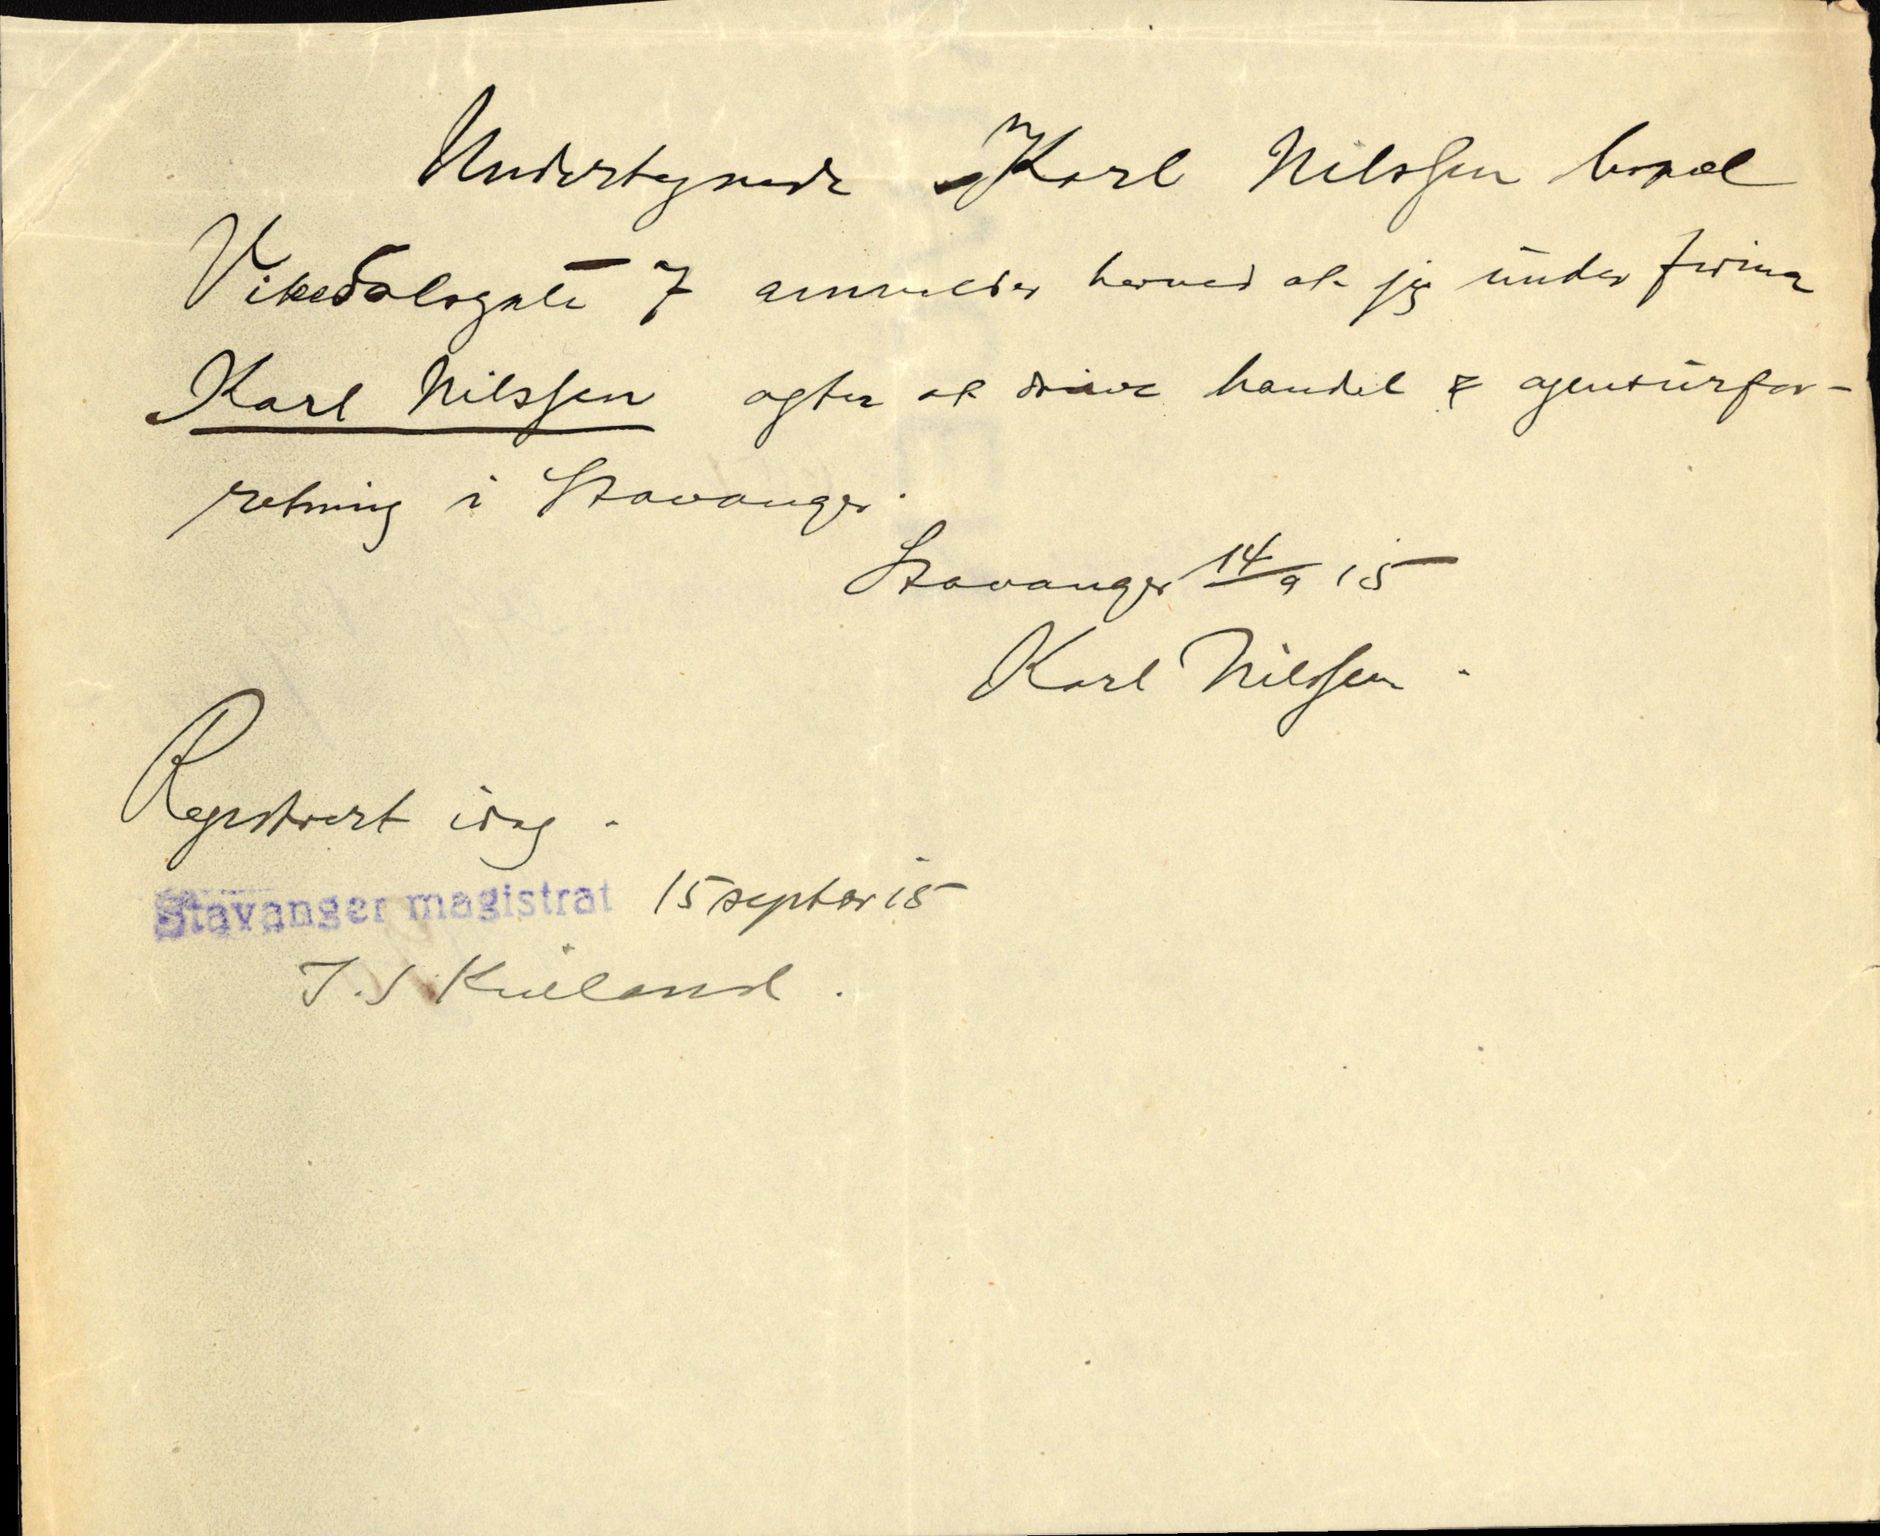 Undertegnede Karl Nilssen bopæl
Vikedalsgate 7 anmelder herved at jeg under firma
Karl Nilssen agter at drive handel & agenturfor-
retning i Stavanger.
Stavanger 14/9 15
Karl Nilssen.
Registrert idag.
Stavanger magistrat 15 septbr 15
J. S Kielland.